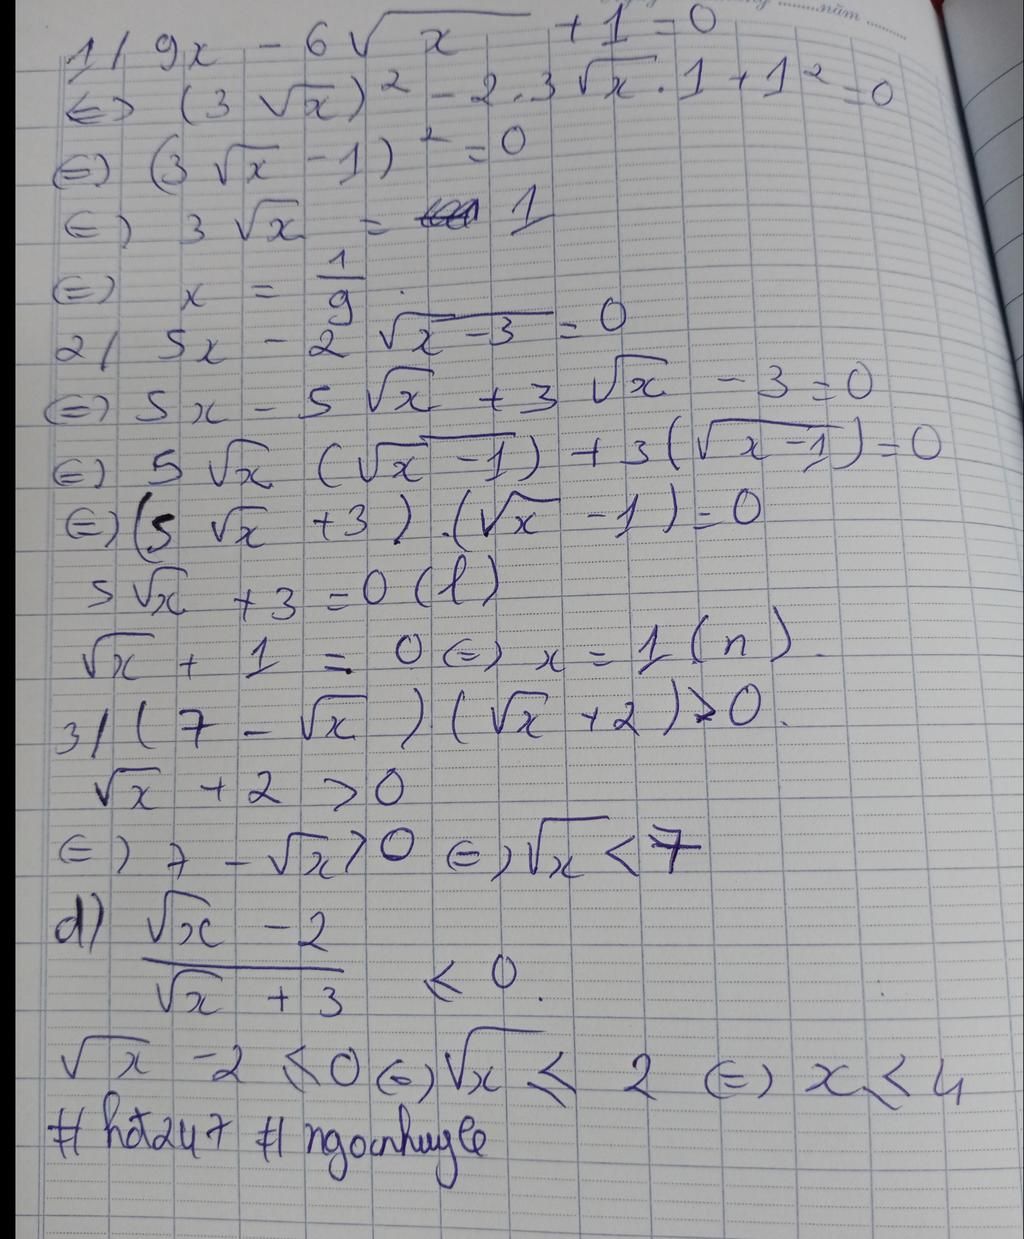 năm
1/ 9x - 6√x + 1 = 0
<=> (3√x)² - 2.3√x.1 + 1² = 0
<=> (3√x - 1)² = 0
<=> 3√x = 1
<=> x = 1/9.
2/ 5x - 2√x-3 = 0
<=> 5x - 5√x + 3√x - 3 = 0
<=> 5√x (√x-1) + 3(√x-1) = 0
<=> (5√x + 3).(√x - 1) = 0
5√x + 3 = 0 (l)
√x + 1 = 0 <=> x = 1 (n).
3/ (7 - √x)(√x + 2) > 0.
√x + 2 > 0
<=> 7 - √x > 0 <=> √x < 7
d) (√x - 2)/(√x + 3) < 0.
√x - 2 ≤ 0 <=> √x ≤ 2 <=> x ≤ 4